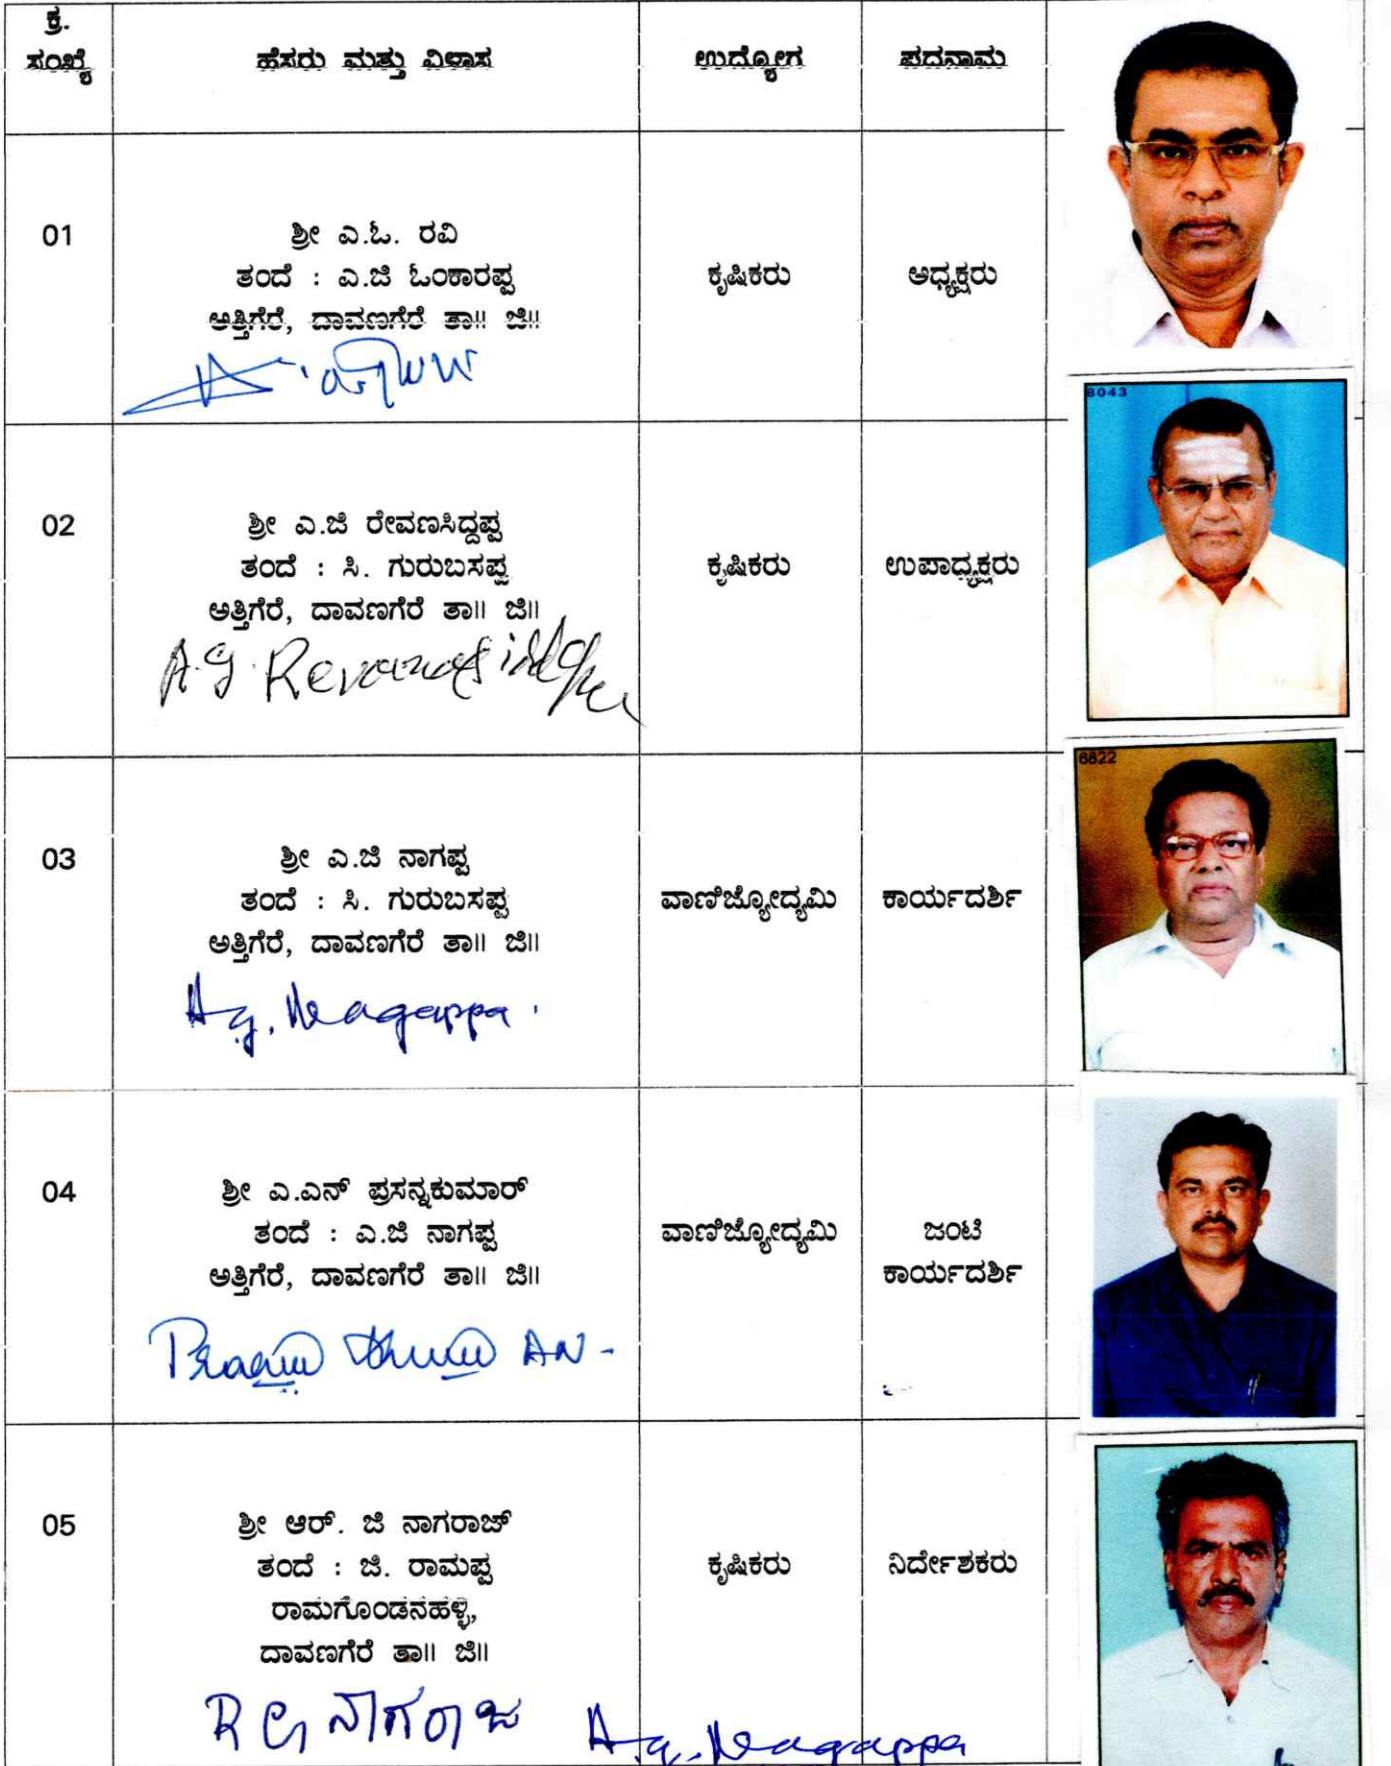 ಕ್ರ.
ಸಂಖ್ಯೆ
ಹೆಸರು ಮತ್ತು ವಿಳಾಸ
ಉದ್ಯೋಗ
ಪದನಾಮ
01
ಶ್ರೀ ಎ.ಓ. ರವಿ
ತಂದೆ : ಎ.ಜಿ ಓಂಕಾರಪ್ಪ
ಅತ್ತಿಗೆರೆ, ದಾವಣಗೆರೆ ತಾ॥ ಜಿ॥
ಕೃಷಿಕರು
ಅಧ್ಯಕ್ಷರು
8043
02
ಶ್ರೀ ಎ.ಜಿ ರೇವಣಸಿದ್ದಪ್ಪ
ತಂದೆ : ಸಿ. ಗುರುಬಸಪ್ಪ
ಅತ್ತಿಗೆರೆ, ದಾವಣಗೆರೆ ತಾ॥ ಜಿ॥
A.G. Revanasiddappa
ಕೃಷಿಕರು
ಉಪಾಧ್ಯಕ್ಷರು
6822
03
ಶ್ರೀ ಎ.ಜಿ ನಾಗಪ್ಪ
ತಂದೆ : ಸಿ. ಗುರುಬಸಪ್ಪ
ಅತ್ತಿಗೆರೆ, ದಾವಣಗೆರೆ ತಾ॥ ಜಿ॥
A.g. Nagappa.
ವಾಣಿಜ್ಯೋದ್ಯಮಿ
ಕಾರ್ಯದರ್ಶಿ
04
ಶ್ರೀ ಎ.ಎನ್ ಪ್ರಸನ್ನಕುಮಾರ್
ತಂದೆ : ಎ.ಜಿ ನಾಗಪ್ಪ
ಅತ್ತಿಗೆರೆ, ದಾವಣಗೆರೆ ತಾ॥ ಜಿ॥
AN -
ವಾಣಿಜ್ಯೋದ್ಯಮಿ
ಜಂಟಿ
ಕಾರ್ಯದರ್ಶಿ
05
ಶ್ರೀ ಆರ್. ಜಿ ನಾಗರಾಜ್
ತಂದೆ : ಜಿ. ರಾಮಪ್ಪ
ರಾಮಗೊಂಡನಹಳ್ಳಿ,
ದಾವಣಗೆರೆ ತಾ॥ ಜಿ॥
R G ನಾಗರಾಜ
ಕೃಷಿಕರು
ನಿರ್ದೇಶಕರು
A.g. Nagappa